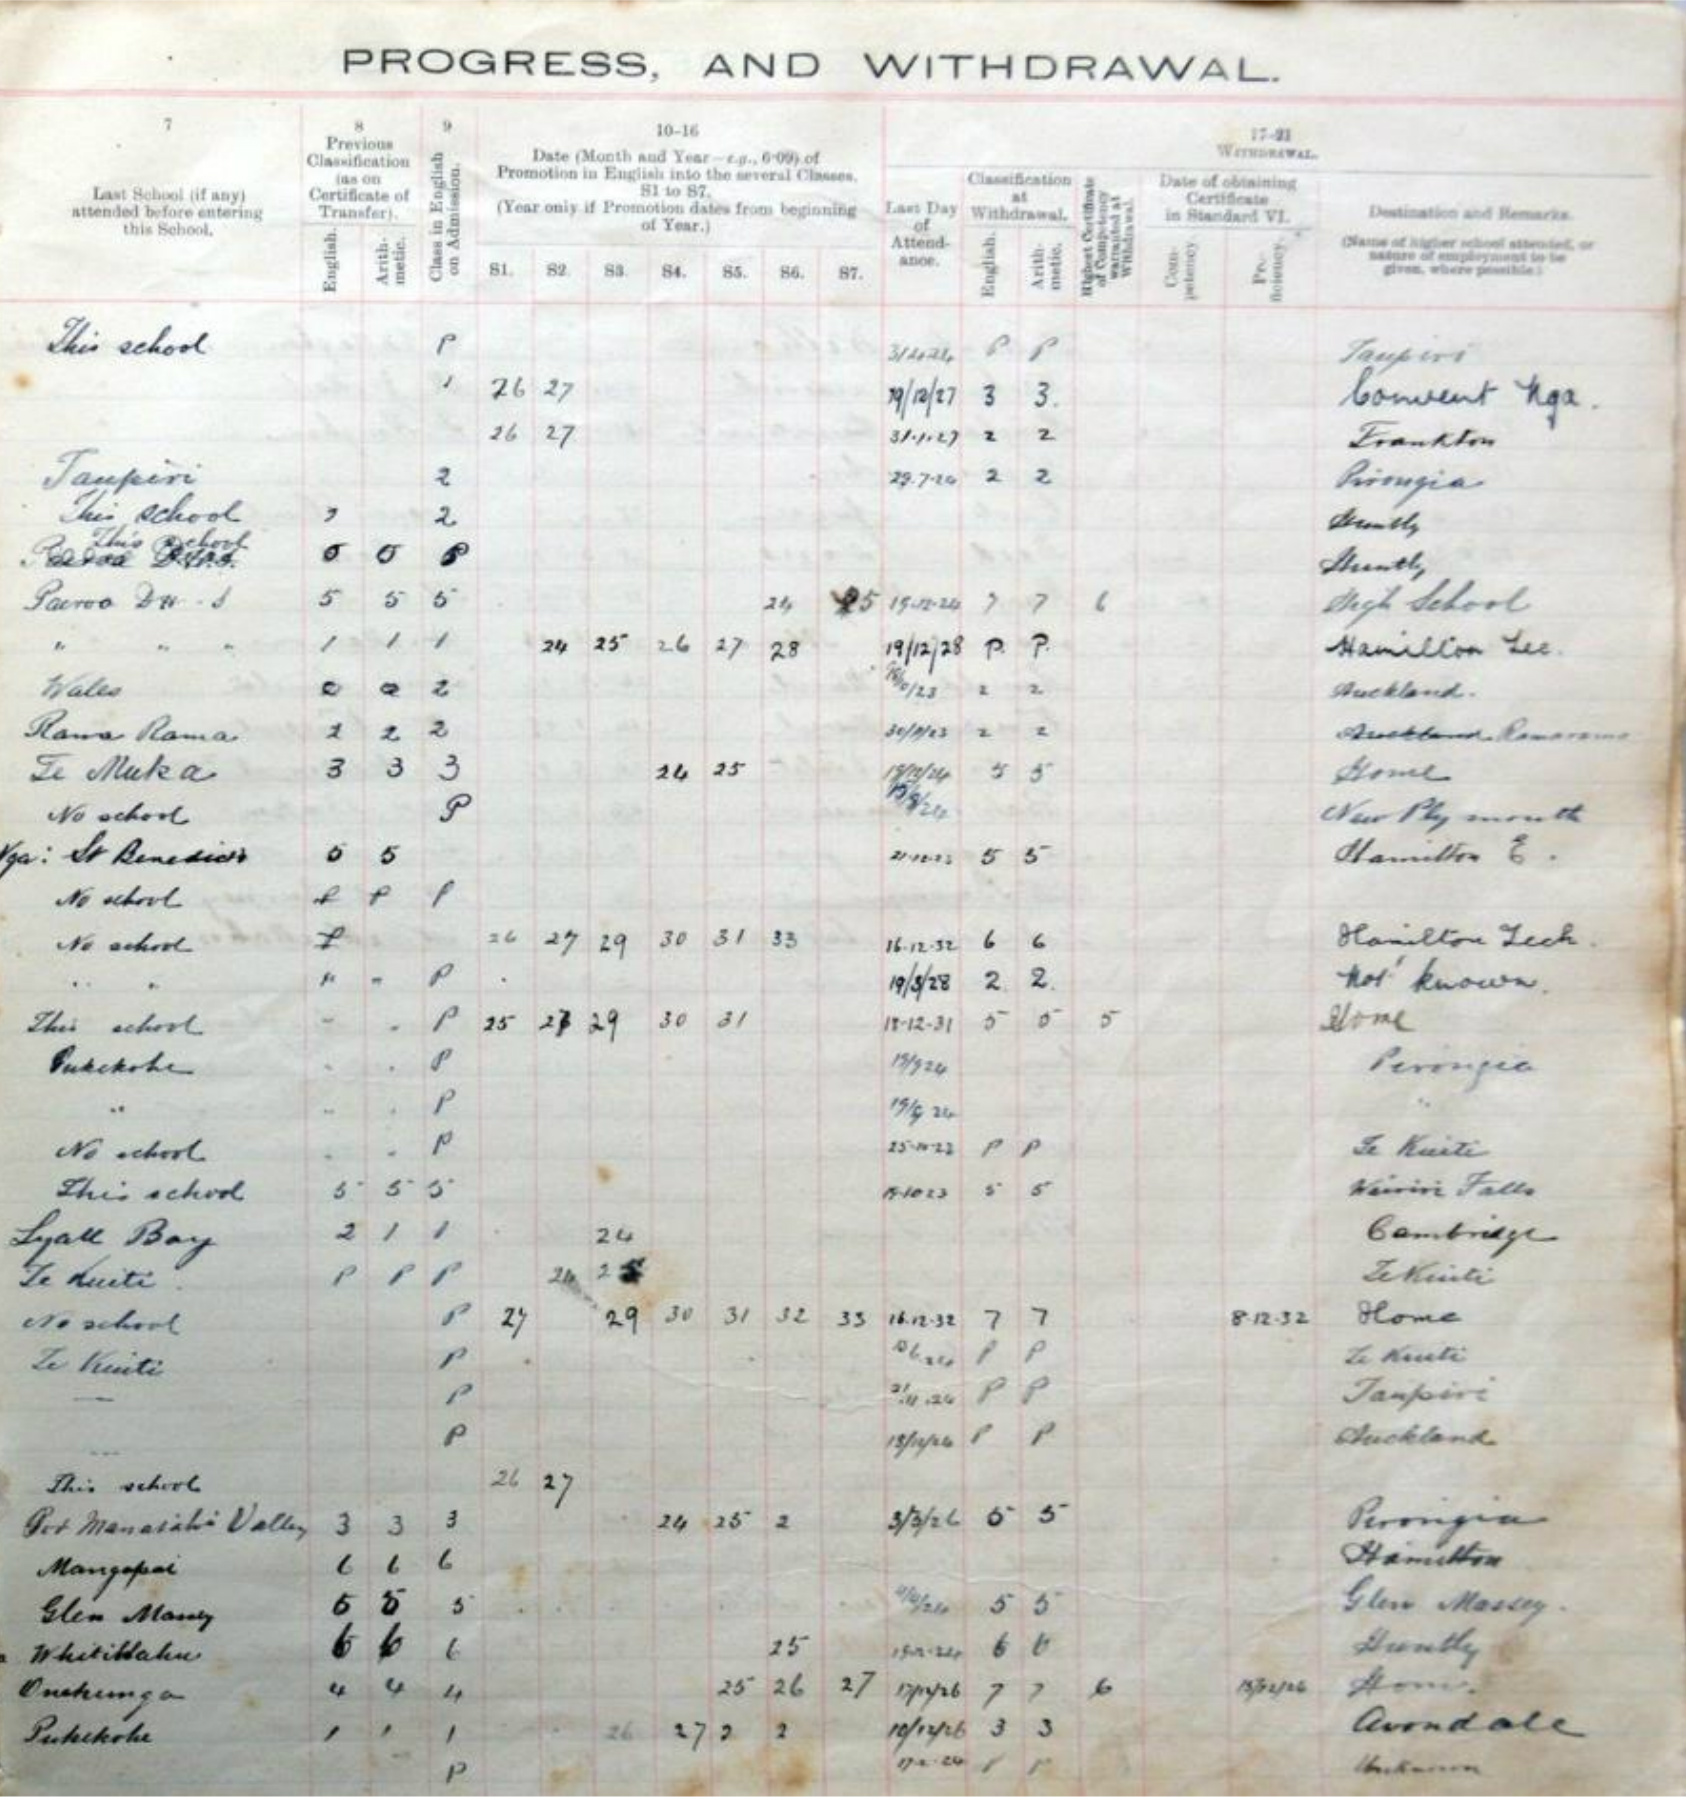 PROGRESS, AND WITHDRAWAL.
7 8 9 10-16 17-21
Last School (if any) attended before entering this School.
Previous Classification (as on Certificate of Transfer).
English. Arith-metic.
Class in English on Admission.
Date (Month and Year—e.g., 6·09) of Promotion in English into the several Classes. S1 to S7.
(Year only if Promotion dates from beginning of Year.)
S1. S2. S3. S4. S5. S6. S7.
WITHDRAWAL.
Last Day of Attend-ance.
Classification at Withdrawal.
English. Arith-metic.
Highest Certificate of Competency warranted at Withdrawal.
Date of obtaining Certificate in Standard VI.
Com-petency. Pro-ficiency.
Destination and Remarks.
(Name of higher school attended, or nature of employment to be given, where possible.)
This school P P P Taupiri
26 27 19/12/27 3 3. Convent Nga.
26 27 31.1.27 2 2 Frankton
Taupiri 2 2 2 Pirongia
This school 2 Huntly
This school P Huntly
Paeroa 5 5 5 24 25 7 7 6 High School
" " " 1 1 1 24 25 26 27 28 19/12/28 P. P. Hamilton Tec.
Wales 2 2 2 Auckland.
Rama Rama 2 2 2 2 2 Auckland Ramarama
Te Muka 3 3 3 24 25 5 5 Home
No school P New Plymouth
Nga: St Benedicts 5 5 5 5 Hamilton E.
No school P P P
No school P 26 27 29 30 31 33 16.12.32 6 6 Hamilton Tech.
" " " P 19/3/28 2 2. Not known.
This school P 25 29 30 31 18-12-31 5 5 5 Home
Pukekohe P Pirongia
" P "
No school P P P Te Kuiti
This school 5 5 5 5 5 Falls
Lyall Bay 2 1 1 24 Cambridge
Te Kuiti P P P 24 25 Te Kuiti
No school P 27 29 30 31 32 33 16.12.32 7 7 8.12.32 Home
Te Kuiti P P P Te Kuiti
— P P P Taupiri
P P P Auckland
This school 26 27
Valley 3 3 3 24 25 2 3/3/26 5 5 Pirongia
Mangapai 6 6 6 Hamilton
Glen Massey 5 5 5 5 5 Glen Massey.
6 6 6 25 6 6 Huntly
Onehunga 4 4 4 25 26 27 17/12/26 7 7 6 Home.
Pukekohe 1 1 1 26 27 2 2 10/12/26 3 3 Avondale
P P P Unknown